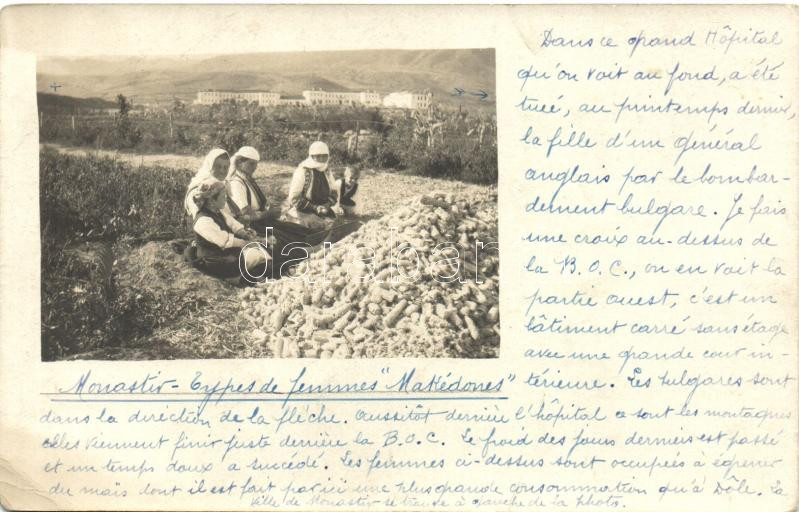 Dans ce grand Hôpital
qu'on voit au fond, a été
tuée, au printemps dernier,
la fille d'un général
anglais par le bombar-
dement bulgare. Je fais
une croix au-dessus de
la B.O.C., on en voit la
partie ouest, c'est un
bâtiment carré sans étage
avec une grande cour in-
térieure. Les bulgares sont
dans la direction de la flèche. Aussitôt derrière l'hôpital ce sont les montagnes
elles viennent finir juste derrière la B.O.C. Le froid des jours derniers est passé
et un temps doux a succédé. Les femmes ci-dessus sont occupées à égrener
du maïs dont il est fait par ici une plus grande consommation qu'à Dôle. La
Ville de Monastir se trouve à gauche de la photo.
Monastir - Types de femmes "Makédones"
darabanth